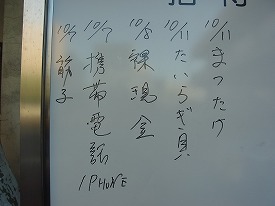 10/11 まつたけ
10/11 たいらぎ貝
10/8 裸現金
10/7 携帯電話
IPHONE
10/7